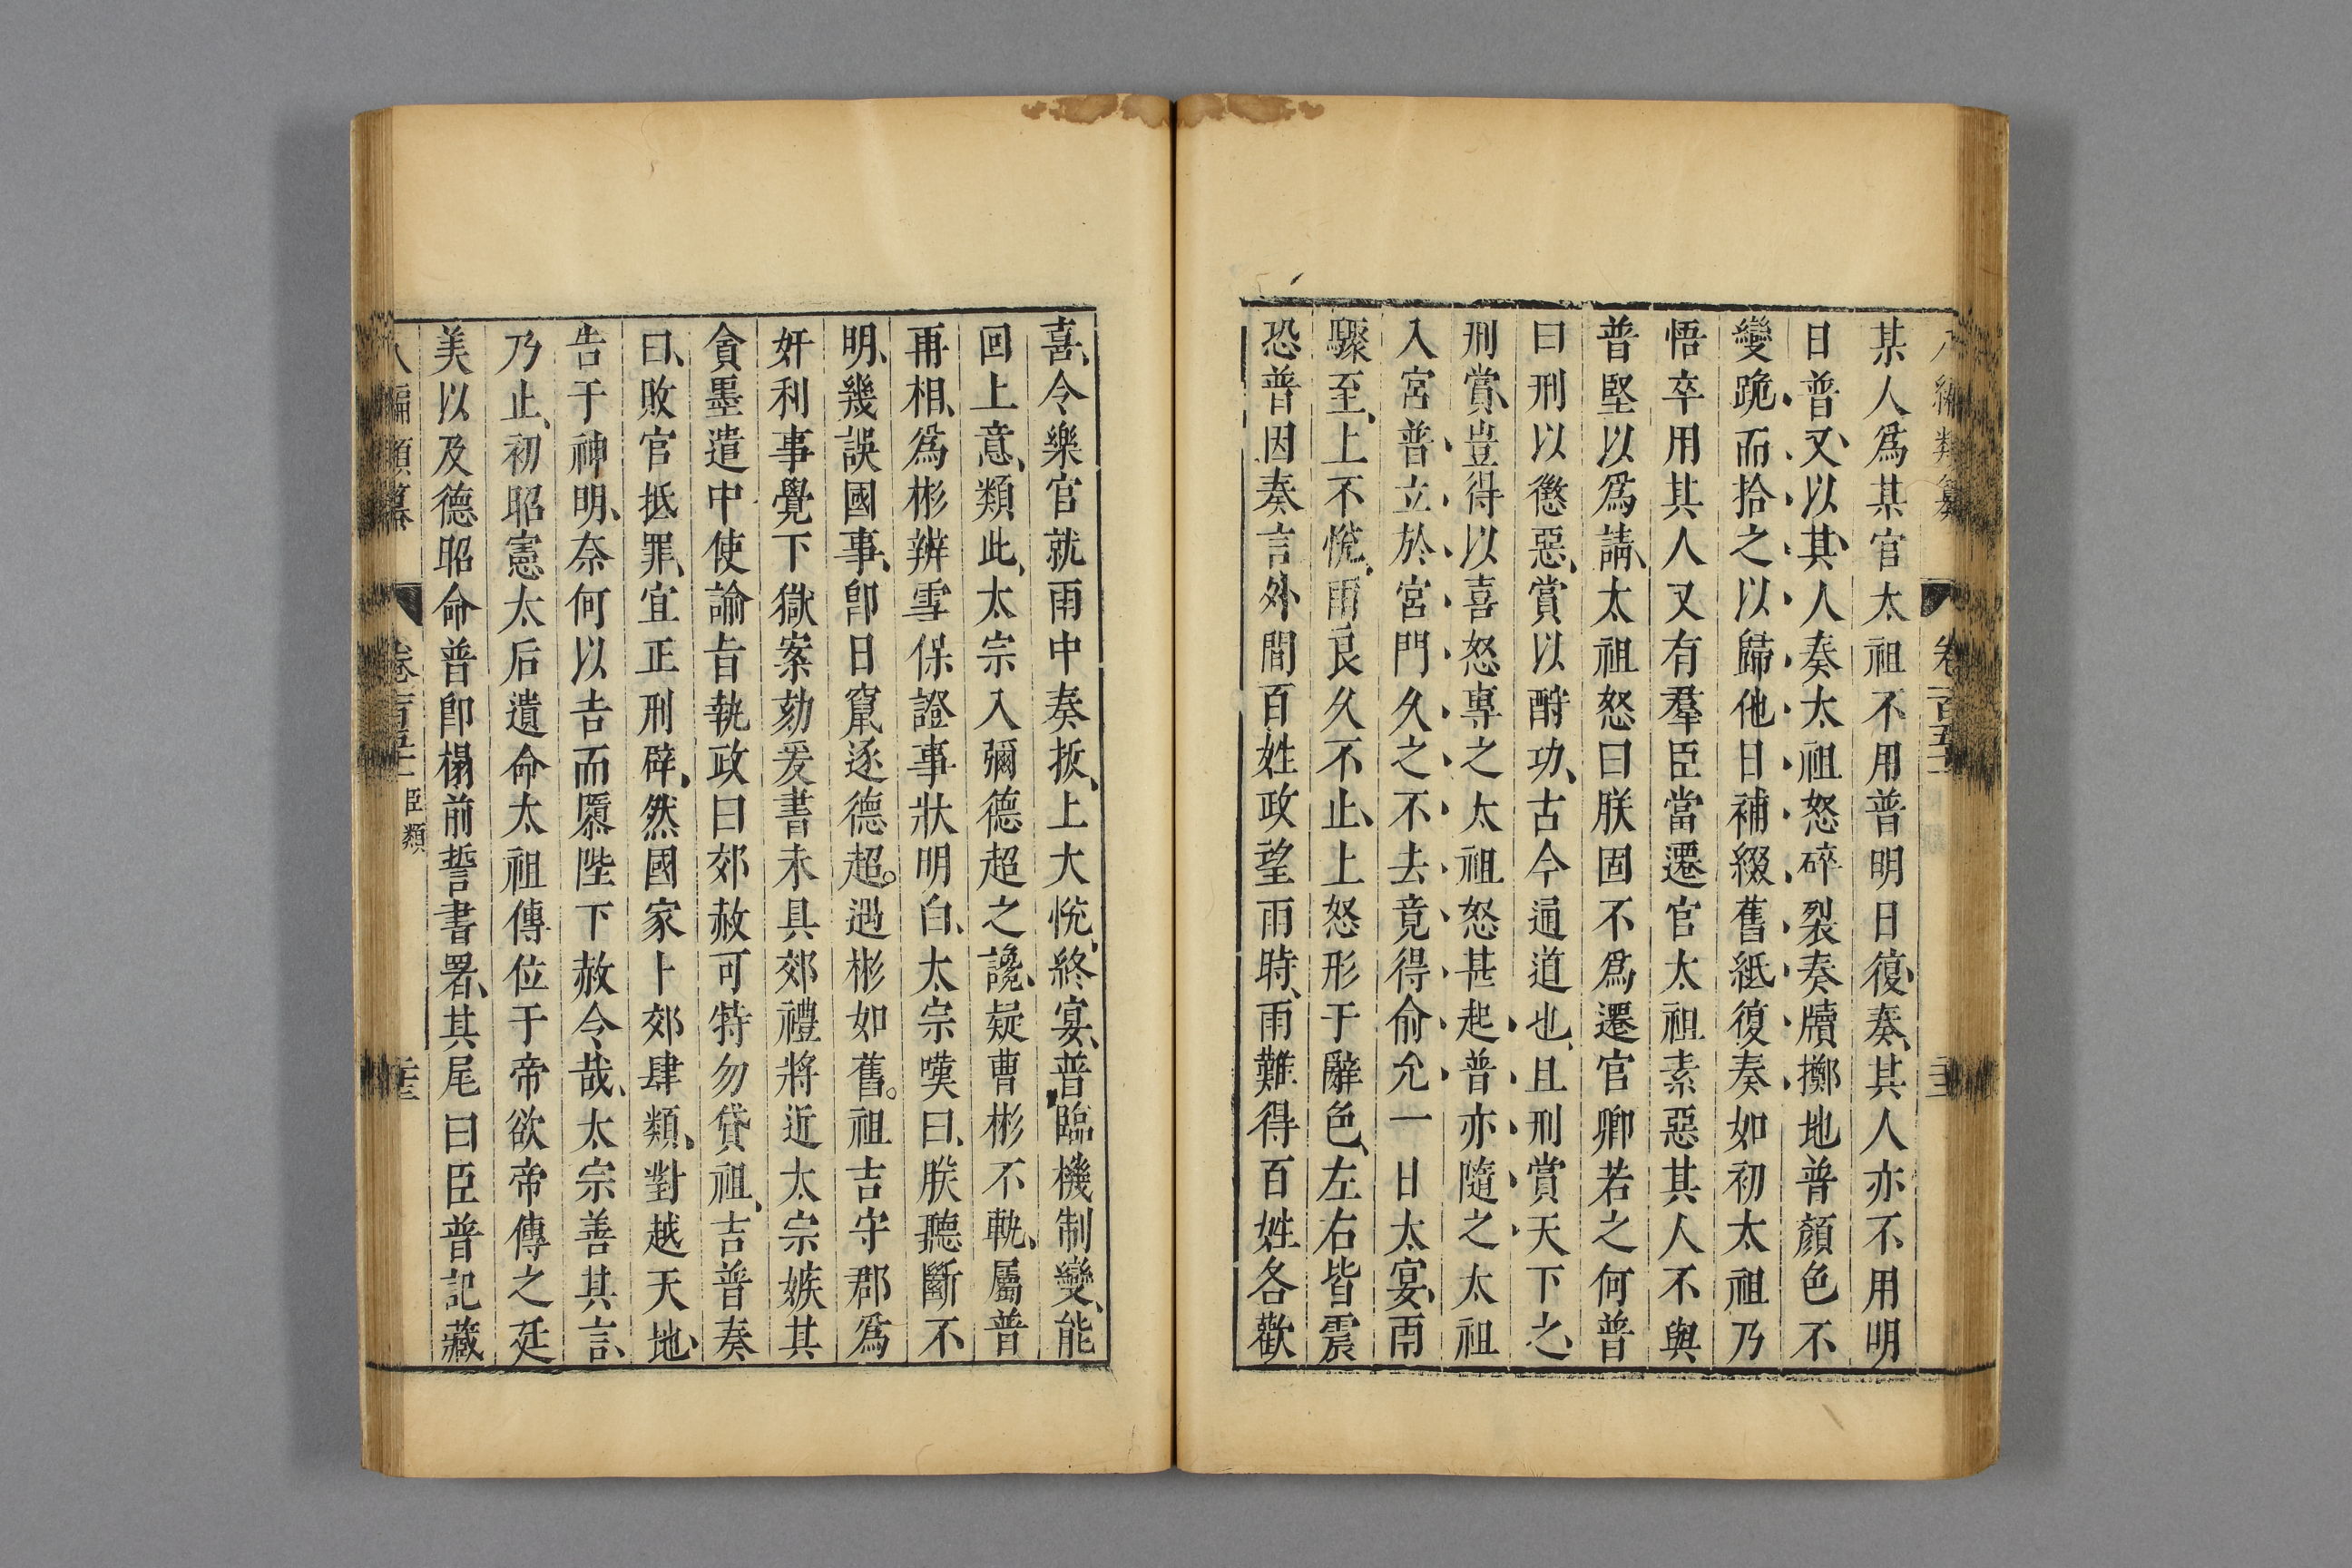 某人爲某官太祖不用普明日復奏、其人亦不用明
日普又以其人奏太祖怒碎裂奏牘擲地普顏色不
變跪而拾之以歸他日補綴舊紙復奏如初太祖乃
悟卒用其人又有羣臣當遷官太祖素惡其人不與
普堅以爲請、太祖怒曰朕固不爲遷官卿若之何普
曰刑以懲惡、賞以酧功、古今通道也、且刑賞天下之、
刑賞、豈得以喜怒專之太祖怒甚起普亦隨之太祖
入宮普立於宮門久之不去竟得俞允一日大宴、雨
驟至、上不悅、雨良久不止、上怒形于辭色、左右皆震
恐普因奏言外間百姓政望雨時、雨難得百姓各歡
喜、令樂官就雨中奏扳、上大悅、終宴、普臨機制變、能
回上意、類此、太宗入彌德超之讒、疑曹彬不軌、屬普
再相、爲彬辨雪保證事狀明白、太宗嘆曰、朕聽斷不
明、幾誤國事、卽日竄逐德超。遇彬如舊。祖吉守郡爲
奸利事覺下獄案劾爰書未具郊禮將近太宗嫉其
貪墨遣中使諭旨執政曰郊赦可特勿貸祖、吉普奏
曰、敗官抵罪、宜正刑辟、然國家卜郊肆類、對越天地、
告于神明、奈何以吉而隳陛下赦令哉、太宗善其言、
乃止、初昭憲太后遺命太祖傳位于帝欲帝傳之廷
美以及德昭命普卽榻前誓書署、其尾曰臣普記藏
編類纂
卷百五十
臣類